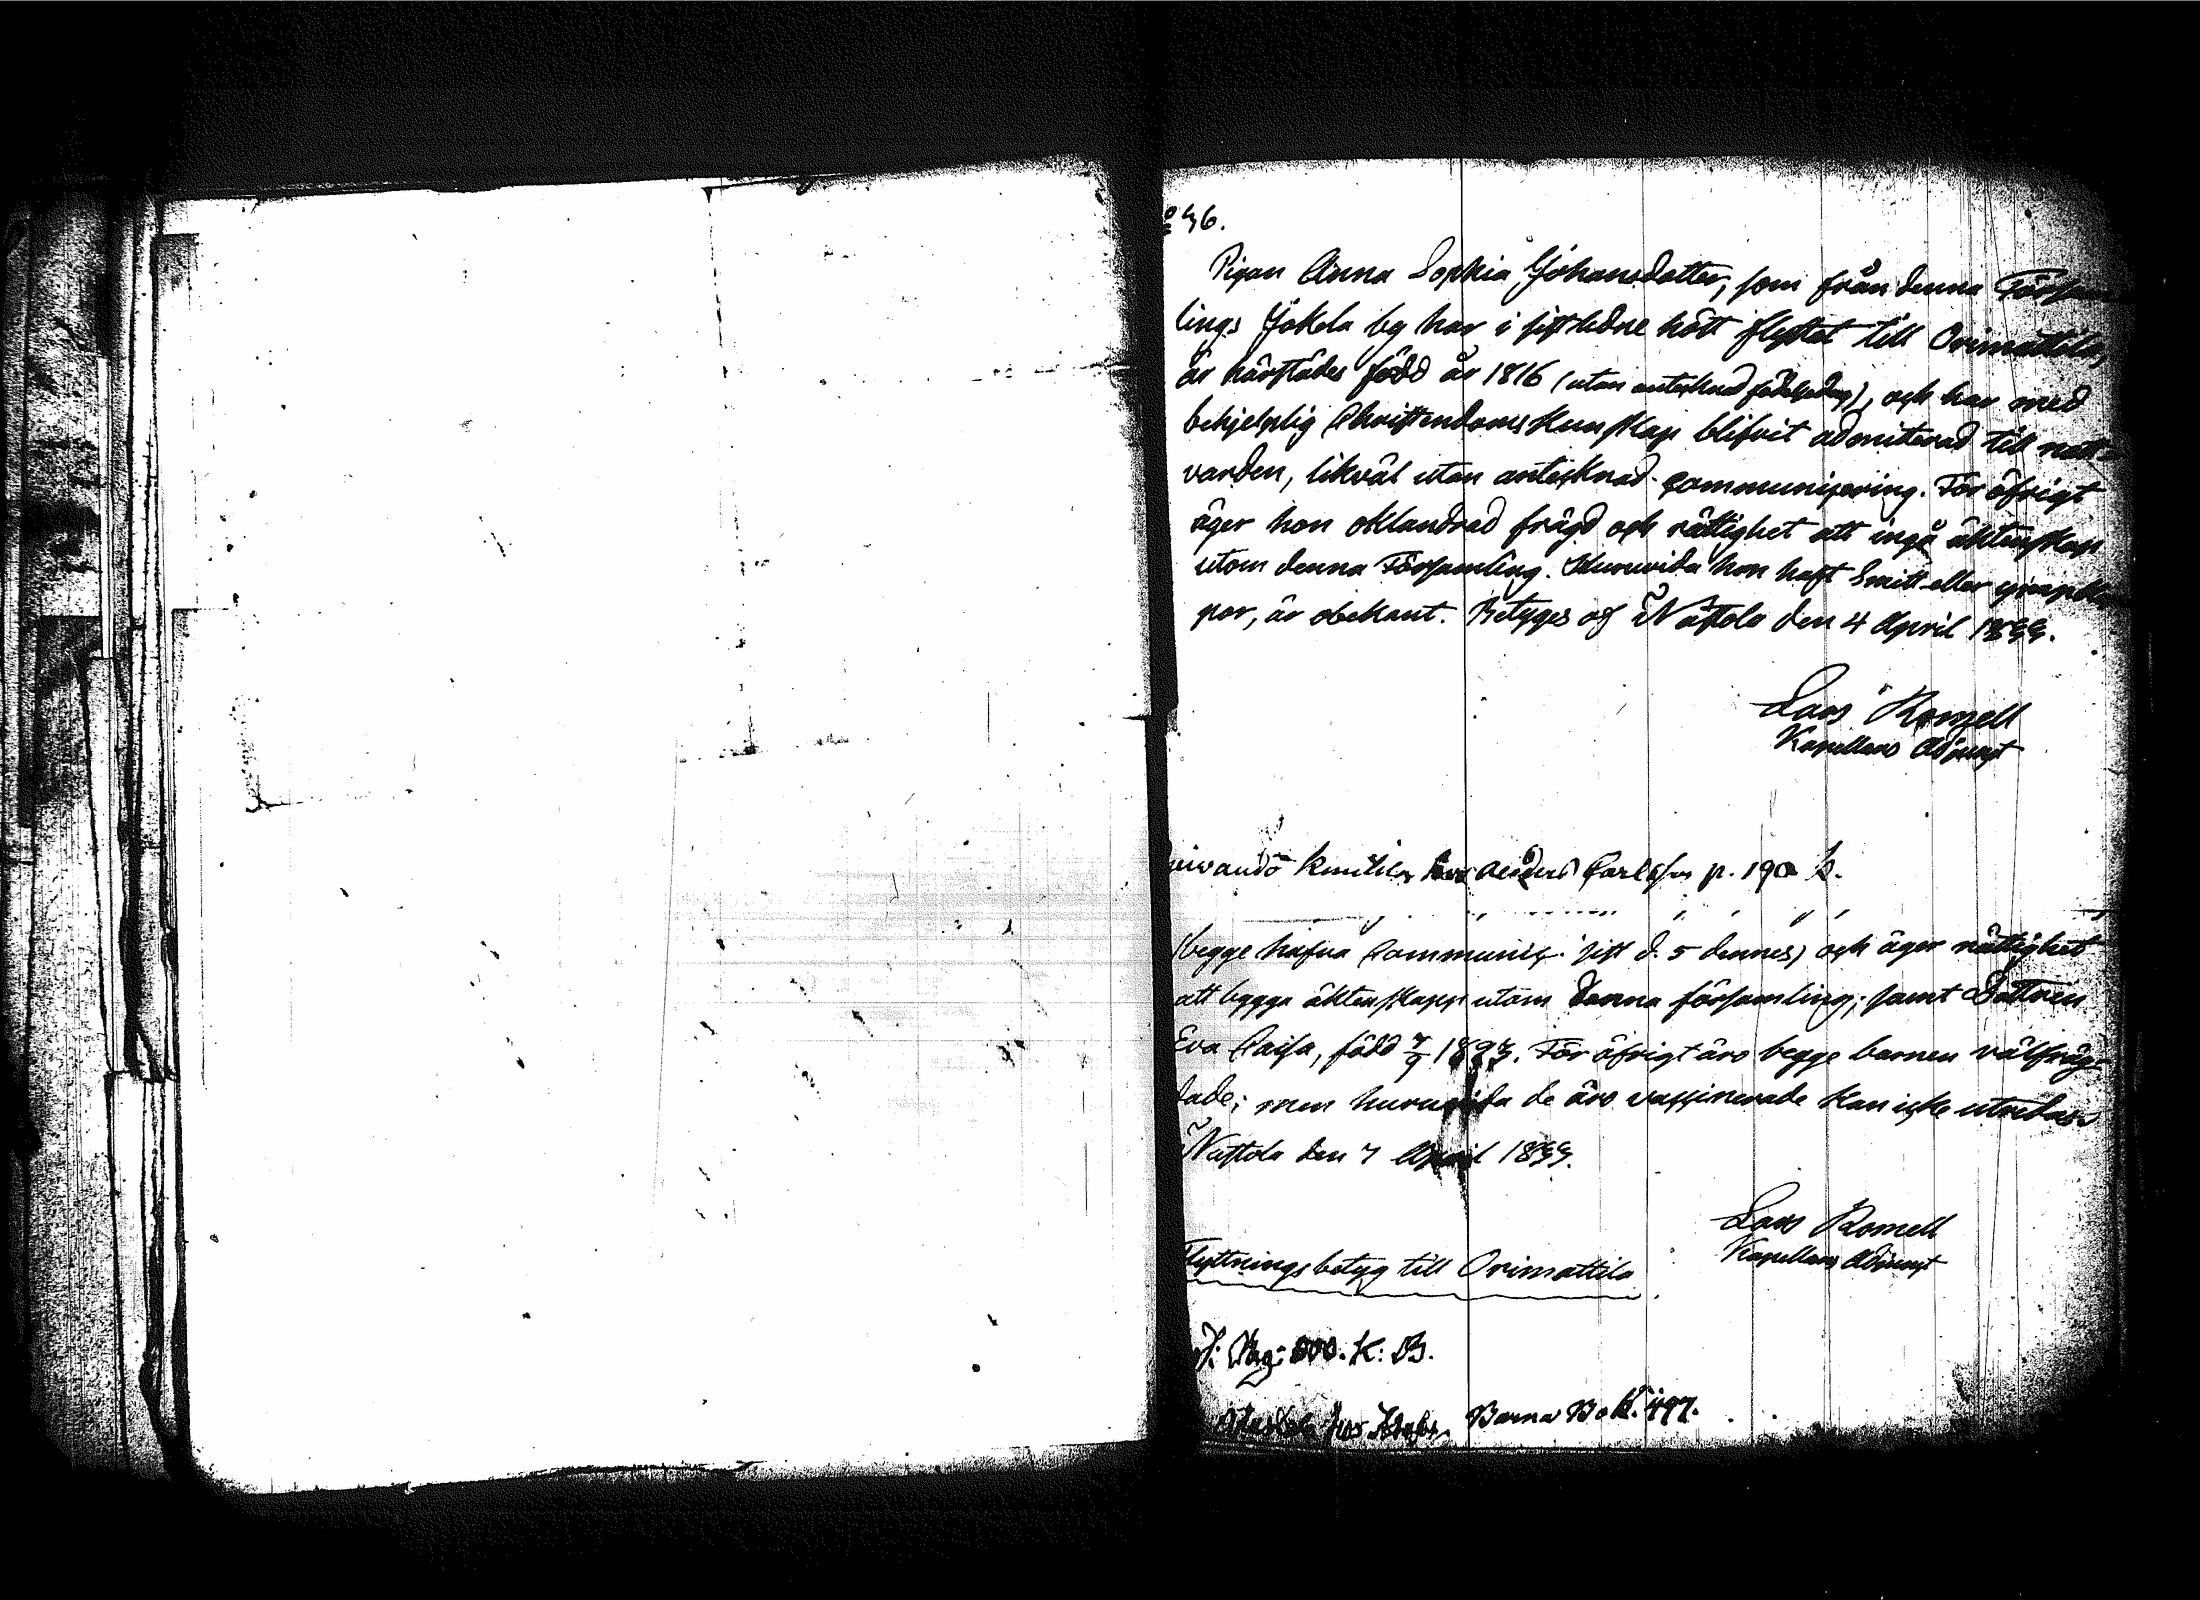 46.
Pigan Anna Sophia Johansdotter, som från denna Församm
lings Jokela by har i sistledne höst flyttat till Orimattila,
är härstädes född år 1816 (utan antecknad födelsedag), och har med
behjelplig Christendoms Kunskap blifvit admitterad till natt-
varden, likväl utan antecknad communicering. För öfrigt
äger hon oklandrad frägd och rättighet att ingå äktenskap
utom denna Församling. Huruvida hon haft Smitt eller
por, är obekant. Betygas af Nastola den 4 April
Lars Romell
Kapellans Adjunct
Anders Carlsson p. 190
begge hafva Communic. sist d. 5 dennes) och äger rättighet
att bygga äktenskapp utom denna församling; samt Dottren
Eva Caisa, född För öfrigt äro begge barnen välfräg-
dade; men huruvida de äro vaccinerade kan icke utredas.
Nastola den 7 April
Lars Romell
Kapellans Adjunct
Flyttningsbetyg till Orimattila
Pag: K: B.
Barna Bok. 497.